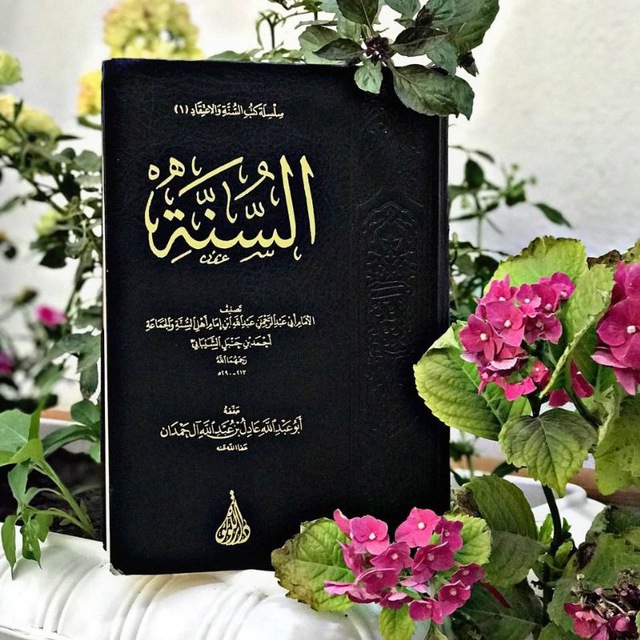 سِلْسِلَة كُتُبِ السُّنَّةِ وَالاعْتِقَادِ (١)
السُّنَّةِ
تَصنِيفُ
الإمَام أبي عَبد الرَّحمٰن عَبد الله ابن إمَام أهْلِ السُّنَّة وَالجَمَاعَة
أحْمَد بن حَنْبَل الشَّيْبَانيّ
رَحِمَهُمَا اللهُ
٢١٣-٢٩٠هـ
حَقَّقَهُ
أبُو عَبْدِ اللهِ عَادِلُ بْنُ عَبْدِ اللهِ آل حَمْدَان
عَفَا اللهُ عَنْهُ